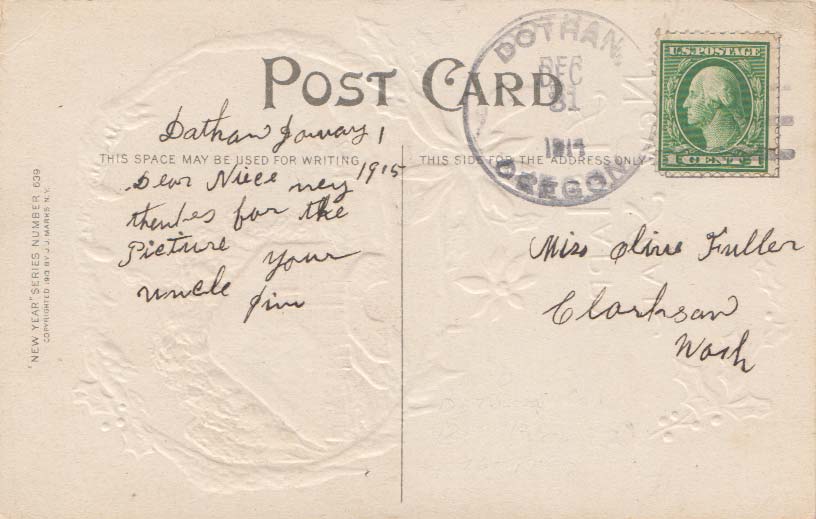 POST CARD
THIS SPACE MAY BE USED FOR WRITING
THIS SIDE FOR THE ADDRESS ONLY
"NEW YEAR" SERIES NUMBER 639
COPYRIGHTED 1913 BY J. J. MARKS N.Y.
DOTHAN,
DEC
31
1914
OREGON
U.S. POSTAGE
1 CENT 1
Dothan January 1
1915
Dear Niece
thankes for the
Picture your
uncle Jim
Miss Olive Fuller
Clarkson
Wash